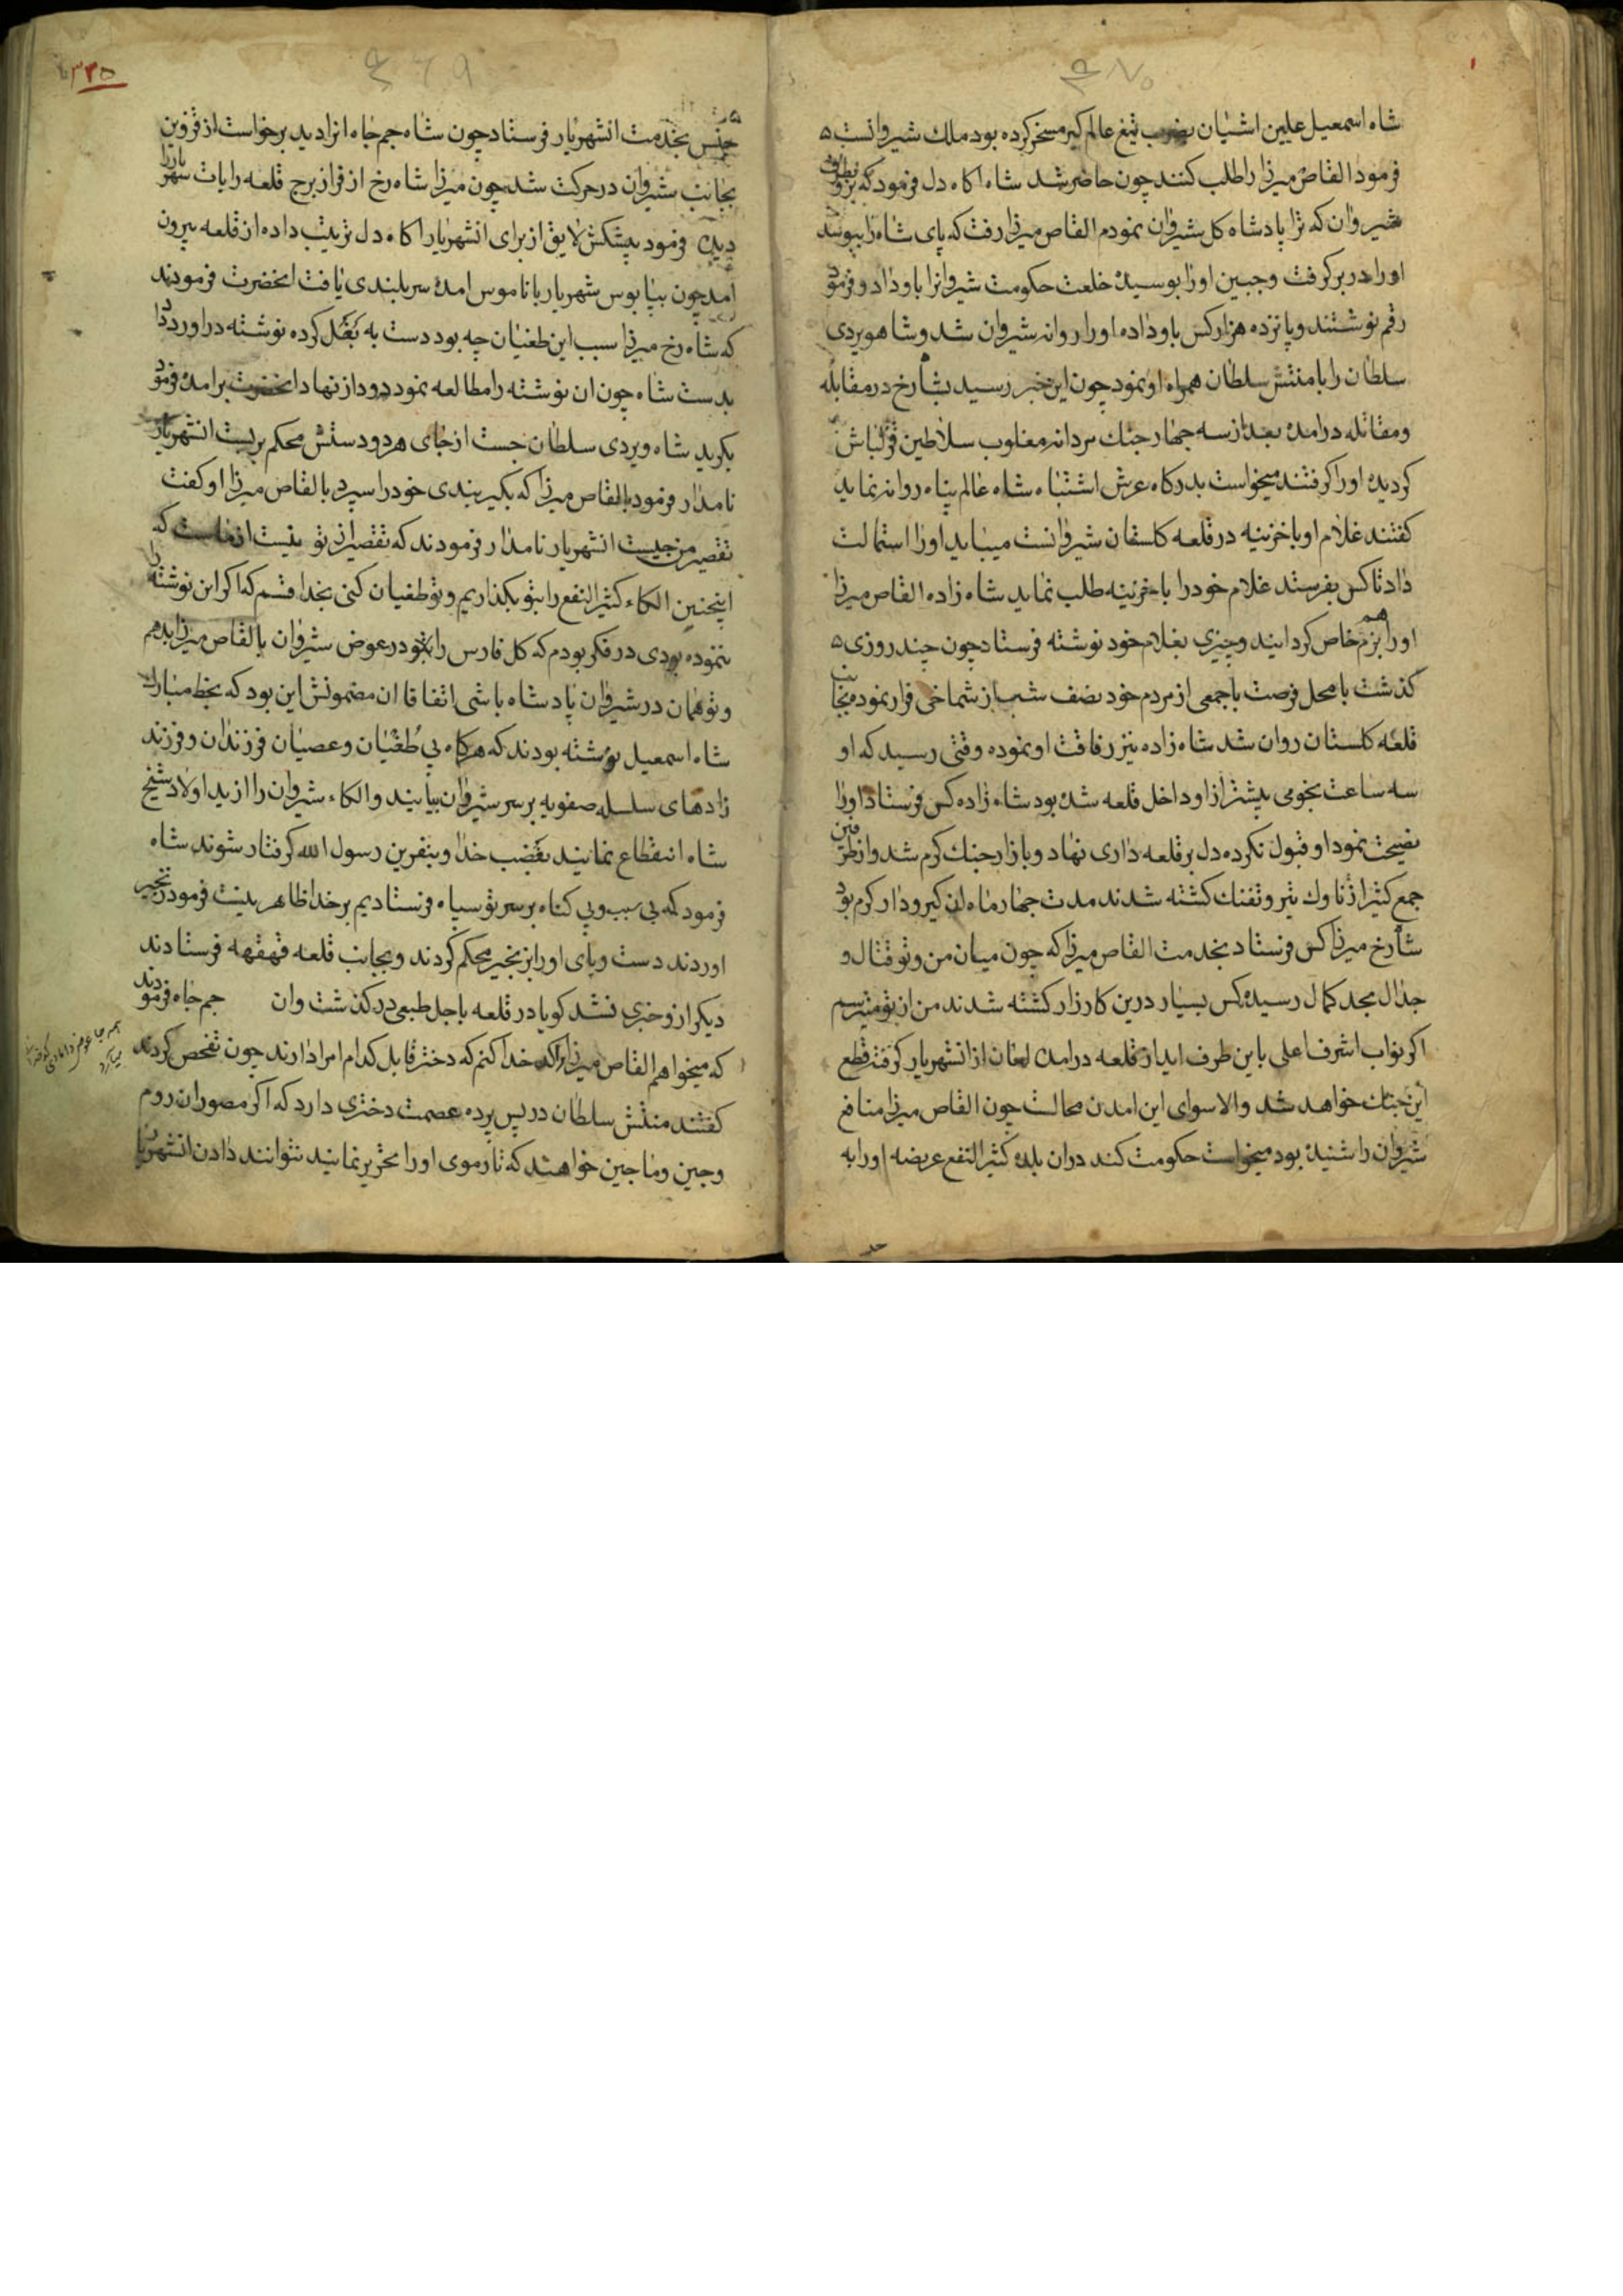 شاه اسمعیل علیین اشیان بضرب تیغ عالم کیر مسخر کرده بود ملک شیروانست
فرمود القاص میرزا را طلب کنند چون حاضر شد شاه اکاه دل فرمود که برو بطرف
شیروان که ترا پادشاه کل شیروان نمودم القاص میرزا رفت که پای شاه را ببوسد
اورا در بر کرفت وجبین اورا بوسیده خلعت حکومت شیروانرا باو داد و فرمود
رقم نوشتند و پانزده هزار کس باو داده اورا روانه شیروان شد و شاهویردی
سلطان را با منتش سلطان همراه او نمود چون این خبر رسید بشارخ در مقابله
ومقاتله درامده بعد از سه جهار جنك مردانه مغلوب سلاطین قزلباش
کردیده اورا کرفتند میخواست بدرکاه عرش اشتباه شاه عالم پناه روانه نماید
کفتند غلام او با خزینه در قلعه کلستان شیروانست میباید اورا استمالت
داد تا کس بفرستد غلام خود را با خزینه طلب نماید شاه زاده القاص میرزا
اورا هم بزم خاص کردانید وچیزی بغلام خود نوشته فرستاد چون چند روزی
کذشت با محل فرصت با جمعی از مردم خود نصف شب از شماخی فرار نموده بجانب
قلعه کلستان روان شد شاه زاده نیز رفاقت او نموده وقتی رسید که او
سه ساعت نجومی پیشتر از او داخل قلعه شده بود شاه زاده کس فرستاد اورا
نصیحت نمود او قبول نکرده دل بر قلعه داری نهاد وبازار جنك کرم شد و از طرفین
جمع کثیر از ناوك تیر و تفنك کشته شدند مدت جهار ماه ان کیرودار کرم بود
شارخ میرزا کس فرستاد بخدمت القاص میرزا که چون میان من وتو قتال و
جدال بحد کمال رسیده کس بسیار درین کارزار کشته شدند من از تو میترسم
اکر نواب اشرف اعلی باین طرف اید از قلعه درامده امان از انشهریار کرفته قطع
این جنك خواهد شد والا سوای این امدن محالست چون القاص میرزا منافع
شیروان را شنیده بود میخواست حکومت کند دران بلده کثیر النفع عریضه اورا به
۳۳۵
جنس بخدمت انشهریار فرستاد چون شاه جم جاه انرا دید برخواست از قزوین
بجانب شیروان در حرکت شد چون میرزا شاه رخ از فراز برج قلعه رایات شهریار را
دید فرمود پیشکش لایق از برای انشهریار اکاه دل ترتیب داده از قلعه بیرون
امد چون بپابوس شهریار با ناموس امده سربلندی یافت انحضرت فرمودند
که شاه رخ میرزا سبب این طغیان چه بود دست به بغل کرده نوشته در اورد داد
بدست شاه چون ان نوشته را مطالعه نمود دود از نهاد انحضرت برامده فرمود
بکرید شاه ویردی سلطان جست از جای هر دو دستش محکم بربست انشهریار
نامدار فرمود بالقاص میرزا که بکیر بندی خود را سپرد بالقاص میرزا او کفت
تقصیر من چیست انشهریار نامدار فرمودند که تقصیر از تو نیست از ماست که
اینچنین الکاء کثیر النفع را بتو بکذاریم وتو طغیان کنی بخدا قسم که اکر این نوشته را
ننموده بودی در فکر بودم که کل فارس را بتو در عوض شیروان بالقاص میرزا بدهم
وتو همان در شیروان پادشاه باشی اتفاقا ان مضمونش این بود که بخط مبارك
شاه اسمعیل نوشته بودند که هرکاه بی طغیان وعصیان فرزندان وفرزند
زادهای سلسله صفویه بر سر شیروان بیایند والکاء شیروان را از ید اولاد شیخ
شاه انقطاع نمایند بغضب خدا وبنفرین رسول الله کرفتار شوند شاه
فرمود که بی سبب وبی کناه بر سر تو سپاه فرستادیم بر خدا ظاهر نیست فرمود زنجیر
اوردند دست وپای اورا بزنجیر محکم کردند وبجانب قلعه قهقهه فرستادند
دیکر ازو خبری نشد کویا در قلعه باجل طبعی در کذشت وان جم جاه فرمودند
که میخواهم القاص میرزا را کد خدا کنم که دختر قابل کدام امرا دارند چون تفحص کردند
کفتند منتش سلطان در پس پرده عصمت دختری دارد که اکر مصوران روم
وچین وماچین خواهند که تار موی اورا تحریر نمایند نتوانند دادن انشهریار